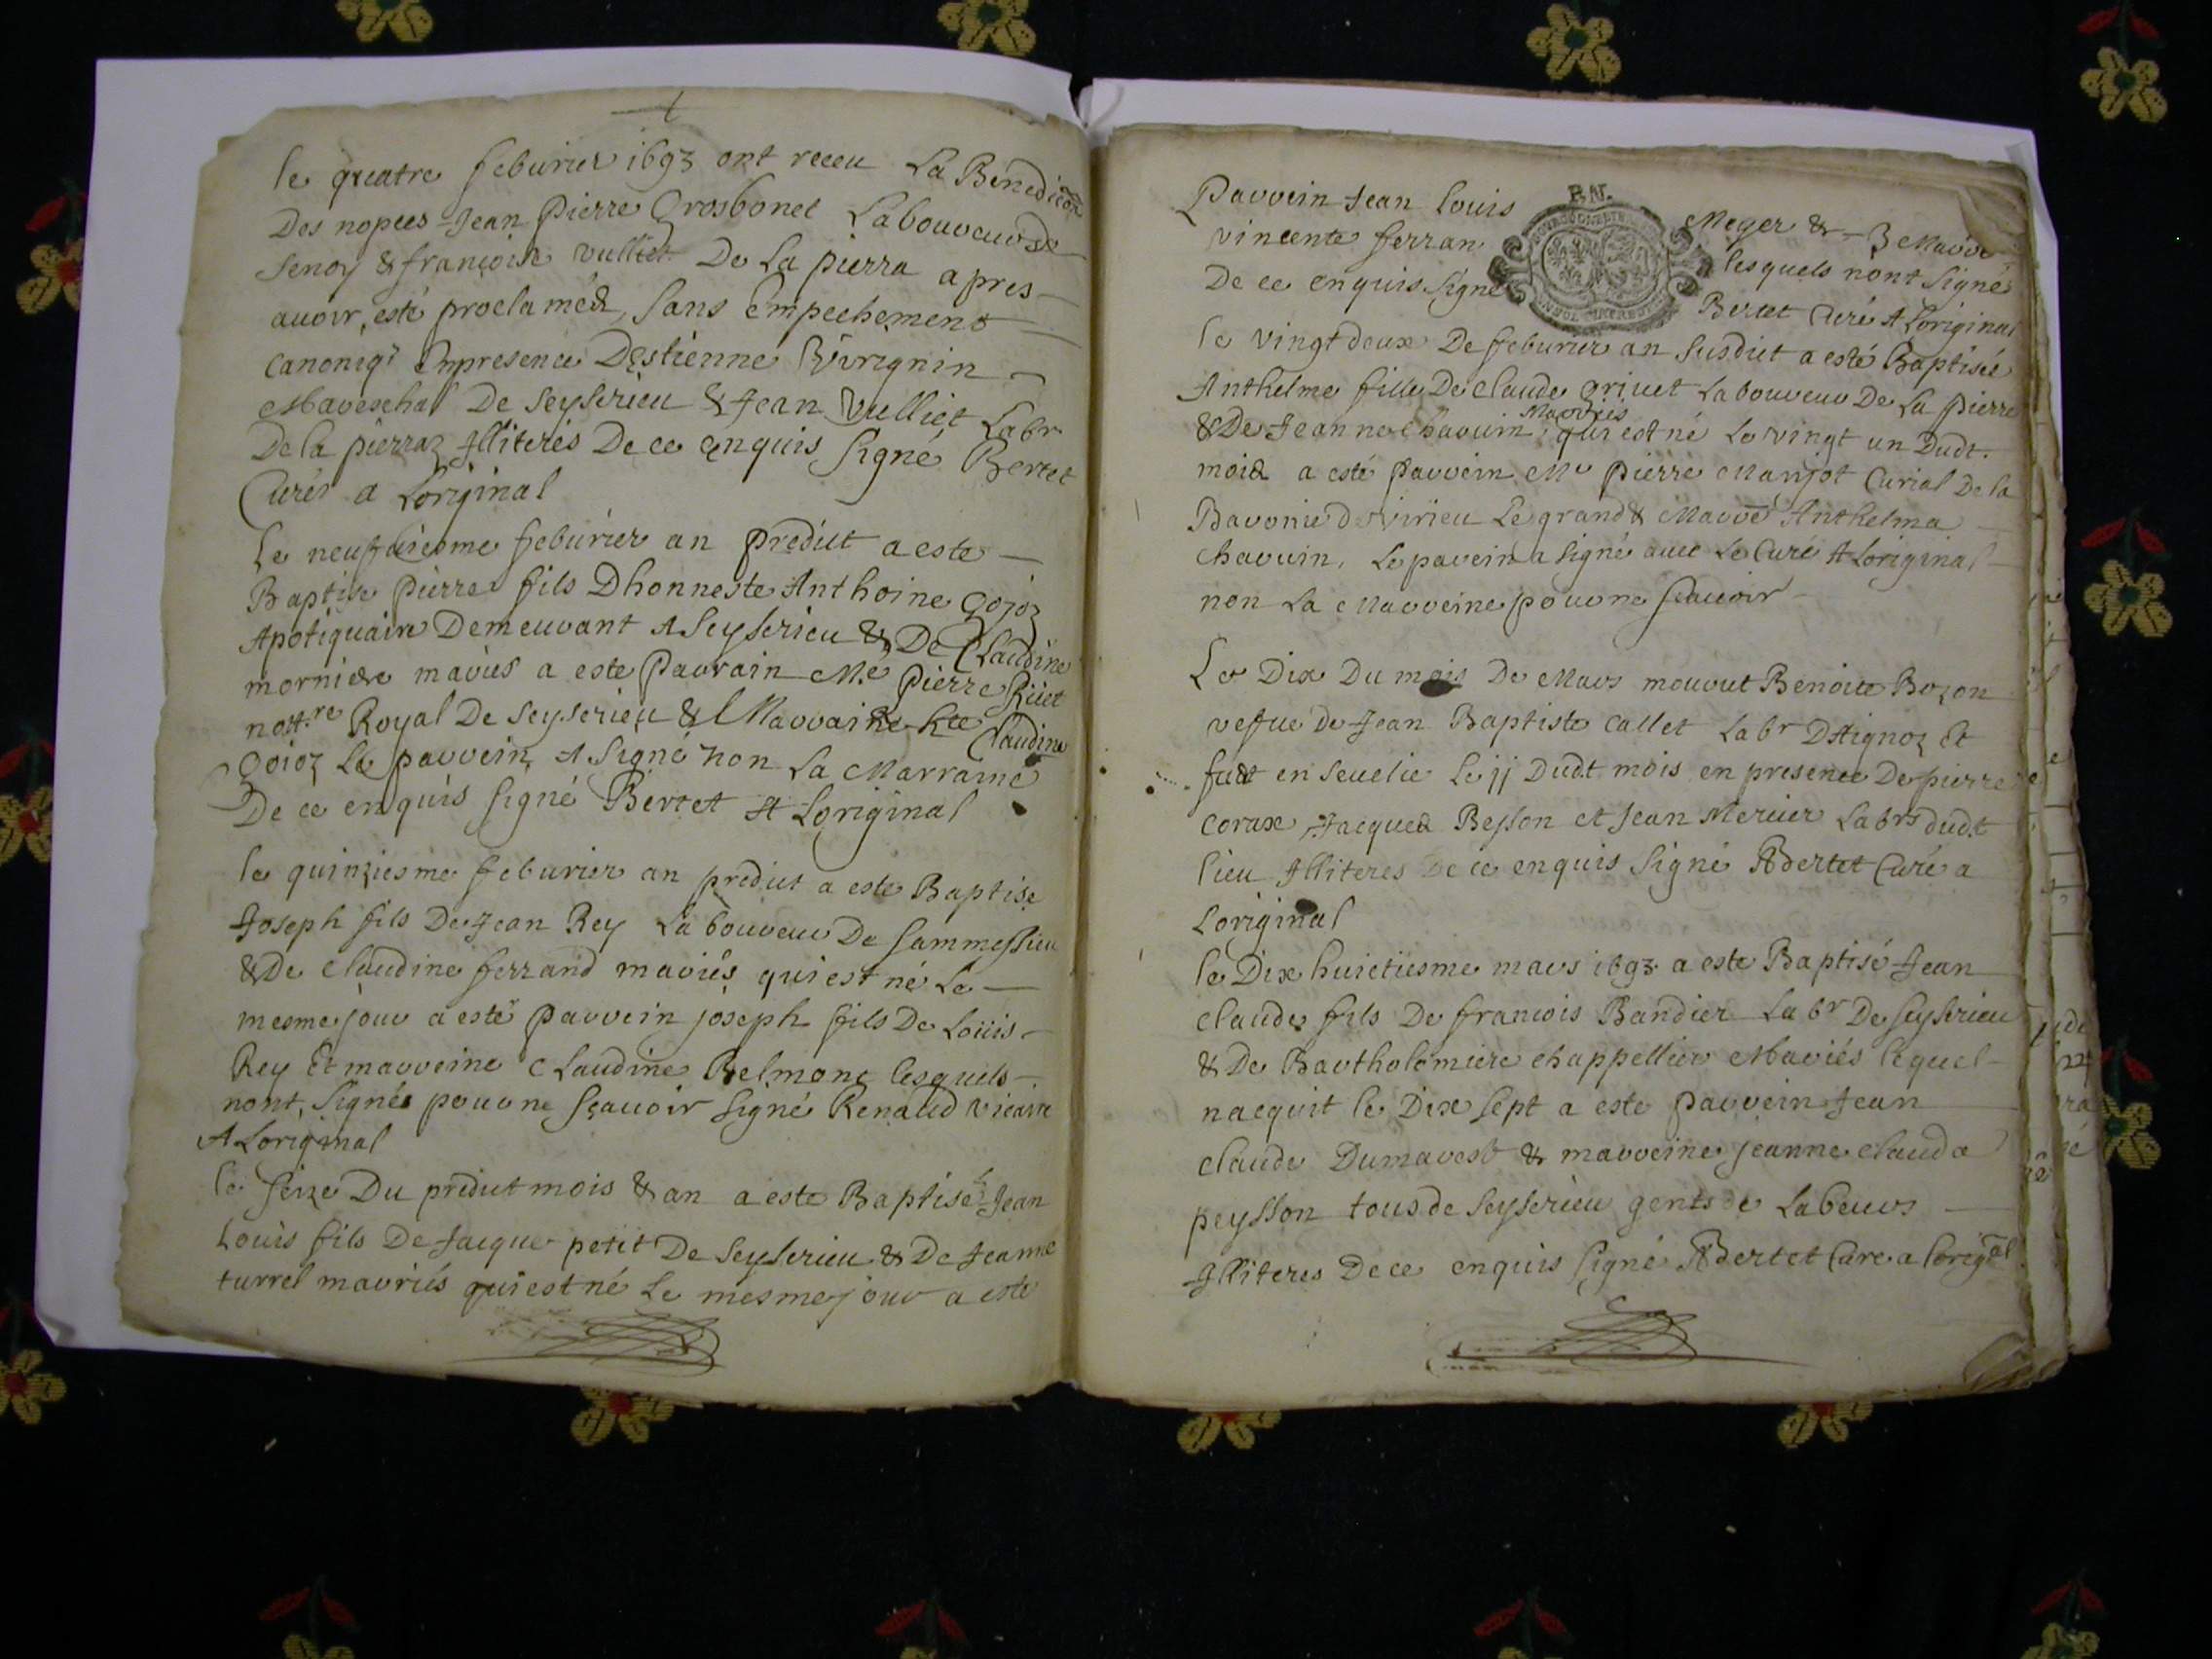 le quatre feburier 1693 ont receu La Benediction
Des nopces Jean Pierre Grosbonet Laboureur de
Senoy & françoise vulliet De La pierra apres
auoir esté proclamés, sans Empechement
canoniq Enpresence Destienne
Mareschal De Seyserieu & Jean Vulliet Labr
De la pierraz Illiterés De ce enquis Signé Bertet
Curé a Loriginal
Le neufuiesme feburier an predict a este
Baptise Pierre fils Dhonneste Anthoine Gojoz
Apotiquaire Demeurant A Seyserieu & De Claudine
morniere mariés a este Parrain Me Pierre Rüet
nottre Royal De Seyserieu & Marraine hte Claudine
Gojoz Le parrein A Signé non La Marraine
De ce enquis signé Bertet A Loriginal
le quinziesme feburier an predict a este Baptise
Joseph fils De Jean Rey Laboureur De Sammessieu
& De Claudine ferrand mariés qui est né Le
mesme jour a esté parrein joseph fils De Loüis
Rey Et marreine Claudine Belmont lesquels
nont Signés pour ne sçauoir signé Renaud vicaire
A Loriginal
le seize Du predict mois & an a este Baptisé Jean
Louis fils De Jacque petit De Seyserieu & De Jeanne
turrel mariés qui est né Le mesme jour a este
R.N.
Parrein Jean louis Meger & Marre
vincente ferran lesquels nont Signé
De ce enquis Signé Bertet Curé A Loriginal
le vingt deux De feburier an susdict a esté Baptisée
Anthelme fille De Claude griuet Laboureur De La pierre
Marriés
& De Jeanne Charuin qui est né Le vingt un Dudt.
mois a esté parrein Me pierre Marjot Curial De la
Baronie de virieu Le grand & Marre Anthelma
Charuin, Le parein a signé auec Le Curé A Loriginal
non La Marreine pour ne sçauoir
Le Dix Du mois De Mars mourut Benoite Bozon
vefue de Jean Baptiste Callet Labr DAignoz Et
fust enseuelie Le 11 Dudt mois en presence De pierre
Corax, Jacques Besson et Jean Mercier Labrs dudt
lieu Illiteres De ce enquis Signé Bertet Curé a
Loriginal
le Dix huictiesme mars 1693 a este Baptisé Jean
Claude fils De francois Bandier Labr De Seyserieu
& De Bartholomiere chappellier Mariés lequel
nacquit le Dix sept a este parrein Jean
Claude Dumarest & marreine jeanne Clauda
peysson tous de Seyserieu gents de Labeurs
Illiteres De ce enquis signé Bertet Cure a loriginal